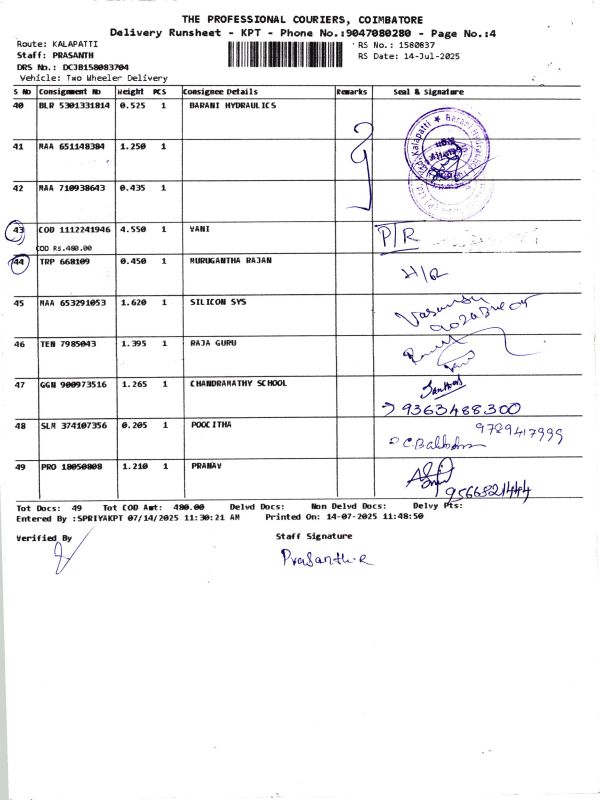 THE PROFESSIONAL COURIERS, COIMBATORE
Delivery Runsheet - KPT - Phone No.:9047080280 - Page No.:4
Route: KALAPATTI
RS No.: 1580837
Staff: PRASANTH
RS Date: 14-Jul-2025
DRS No.: DCJB158083704
Vehicle: Two Wheeler Delivery
S No Consignment No Weight PCS Consignee Details Remarks Seal & Signature
40 BLR 5301331814 0.525 1 BARANI HYDRAULICS
41 MAA 651148384 1.250 1
42 MAA 710938643 0.435 1
43 COD 1112241946 4.550 1 VANI P/R
COD RS.480.00
44 TRP 668109 0.450 1 MURUGANTHA RAJAN H/R
45 MAA 653291053 1.620 1 SILICON SYS
46 TEN 7985043 1.395 1 RAJA GURU
47 GGN 900973516 1.265 1 CHANDRAMATHY SCHOOL
9363488300
48 SLM 374107356 0.205 1 POOCITHA 9789417999
49 PRO 18050808 1.210 1 PRANAV
9566321444
Tot Docs: 49 Tot COD Amt: 480.00 Delvd Docs: Non Delvd Docs: Delvy Pts:
Entered By :SPRIYAKPT 07/14/2025 11:30:21 AM Printed On: 14-07-2025 11:48:50
Verified By
Staff Signature
Prasanth.R